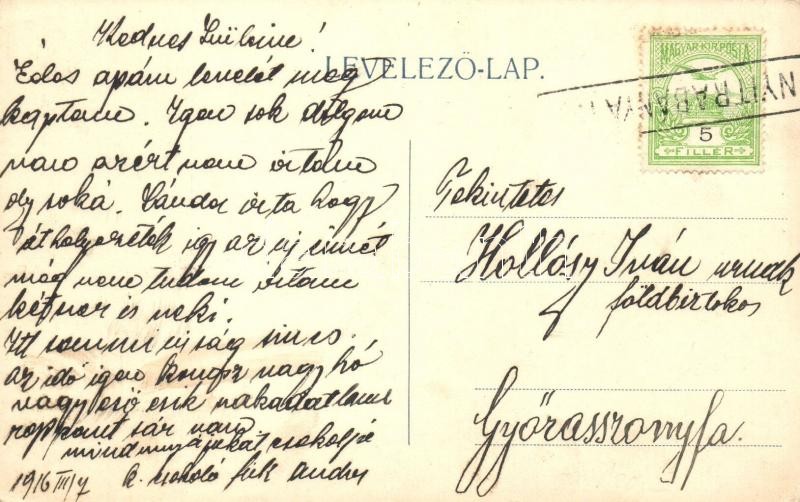 Kedves Szüleim!
Édes apám levelét meg
kaptam. Igen sok dolgom
van azért nem írtam
oly soká. Sándor írta hogy
áthelyezték így az új címét
még nem tudom írtam
kétszer is neki.
Itt semmi újság sincs.
az idő igen komisz nagy hó
nagy eső esik szakadatlanul
roppant sár van
mindnyájukat csókolja
1916 III/7 k. csókoló fiuk Andor
LEVELEZŐ-LAP.
MAGYAR KIR. POSTA
5
FILLER
NYITRABÁNYA
Tekintetes
Hollósy Iván urnak
földbirtokos
Győrasszonyfa.